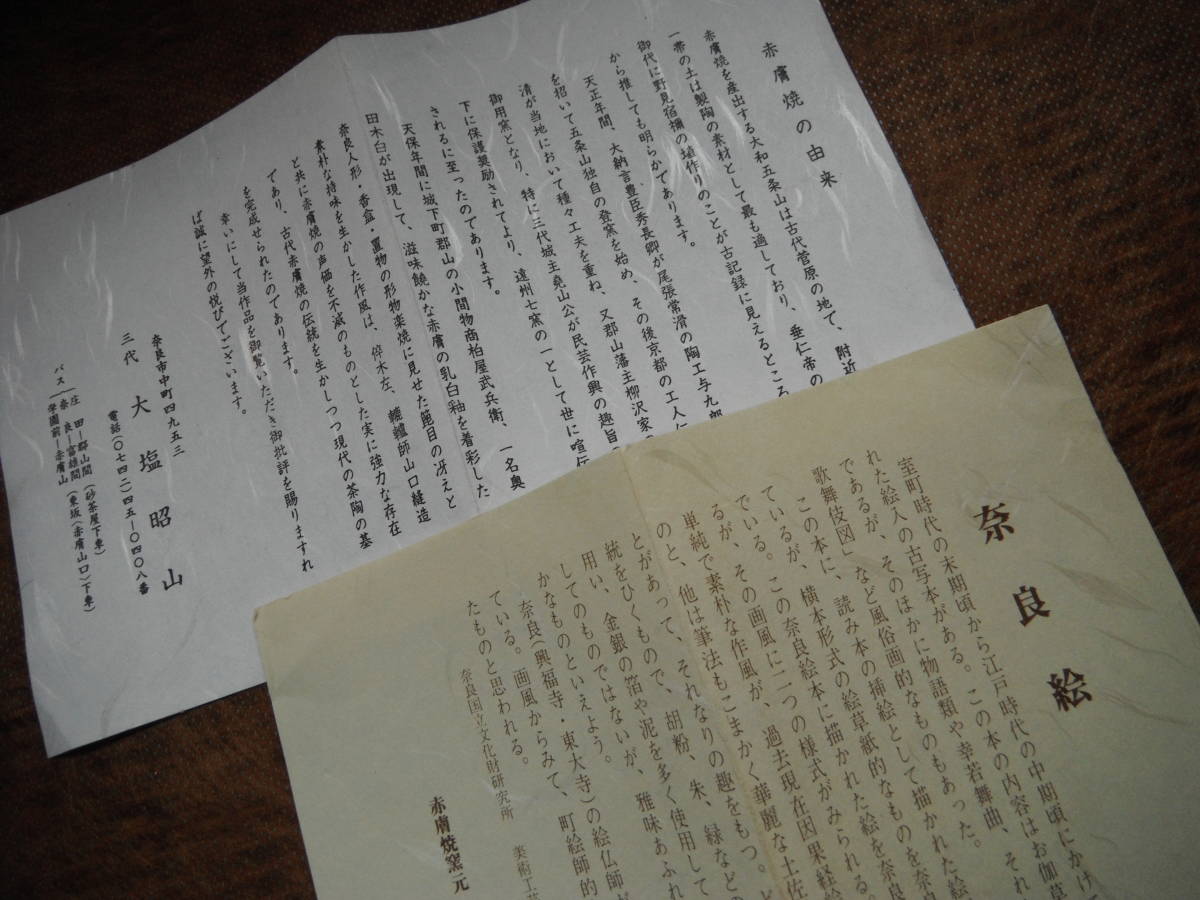 赤膚焼の由来
赤膚焼を産出する大和五条山は古代菅原の地て、附近
一帯の土は製陶の素材として最も適しており、垂仁帝の
御代に野見宿禰の埴作りのことが古記録に見えるところ
から推しても明らかであります。
天正年間、大納言豊臣秀長卿が尾張常滑の陶工与九郎
を招いて五条山独自の登窯を始め、その後京都の工人仁
清が当地において種々工夫を重ね、又郡山藩主柳沢家の
御用窯となり、特に三代城主堯山公が民芸作興の趣旨の
下に保護奨励されてより、遠州七窯の一として世に喧伝
されるに至ったのであります。
天保年間に城下町郡山の小間物商柏屋武兵衛、一名奥
田木白が出現して、滋味饒かな赤膚の乳白釉を着彩した
奈良人形・香盒・置物の形物楽焼に見せた箆目の冴えと
素朴な持味を生かした作風は、倅木左、轆轤師山口縫造
と共に赤膚焼の声価を不滅のものとした実に強力な存在
であり、古代赤膚焼の伝統を生かしつつ現代の茶陶の基
を完成せられたのであります。
幸いにして当作品を御覧いただき御批評を賜りますれ
ば誠に望外の悦びでございます。
奈良市中町四九五三
三代 大塩昭山
電話(〇七四二)四五ー〇四〇八番
バス
庄田ー郡山間(砂茶屋下車)
奈良ー富雄間(東坂(赤膚山口)下車)
学園前ー赤膚山
奈良絵
室町時代の末期頃から江戸時代の中期頃にかけて
れた絵入の古写本がある。この本の内容はお伽草
であるが、そのほかに物語類や幸若舞曲、それ
歌舞伎図」など風俗画的なものもあった。
この本に、読み本の挿絵として描かれた絵
ているが、横本形式の絵草紙的なものを奈良
でいる。この奈良絵本に描かれた絵を奈良
るが、その画風に二つの様式がみられる。
単純で素朴な作風が、過去現在因果経絵
のと、他は筆法もこまかく華麗な土佐
とがあって、それなりの趣をもつ。ど
統をひくもので、胡粉、朱、緑などの
用い、金銀の箔や泥を多く使用して
してのものではないが、雅味あふれ
かなものといえよう。
奈良(興福寺・東大寺)の絵仏師が
ている。画風からみて、町絵師的
たものと思われる。
奈良国立文化財研究所
美術工芸
赤膚焼窯元